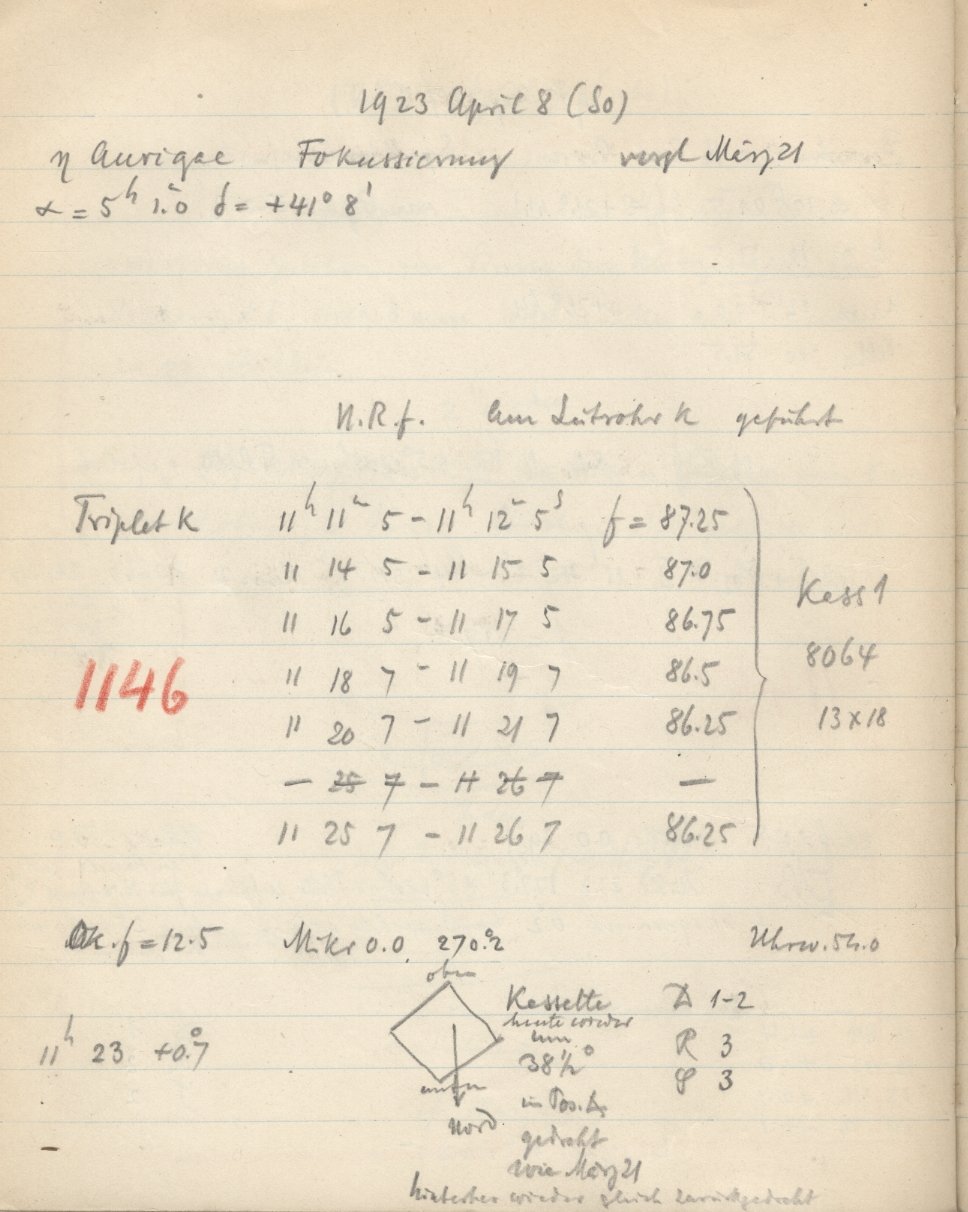 1923 April 8 (So)
η Aurigae Fokussierung vergl März 21
α = 5h 1.m0 δ = +41° 8'
N.R.f. Am Leitrohr K geführt
Triplet K 11h 11m 5 – 11h 12m 5s f = 87.25
11 14 5 – 11 15 5 87.0
11 16 5 – 11 17 5 86.75
Kass 1
11 18 7 – 11 19 7 86.5
8064
1146
11 20 7 – 11 21 7 86.25
13 x 18
— 25 7 – 11 26 7 —
11 25 7 – 11 26 7 86.25
Ok. f = 12.5 Mikr 0.0 270.°2 Uhrw. 54.0
oben
Kassette
heute wieder
um
38½°
in Pos.
gedreht
wie März 21
hinterher wieder gleich zurückgedreht
unten
Nord
1–2
R 3
3
11h 23 +0.°7